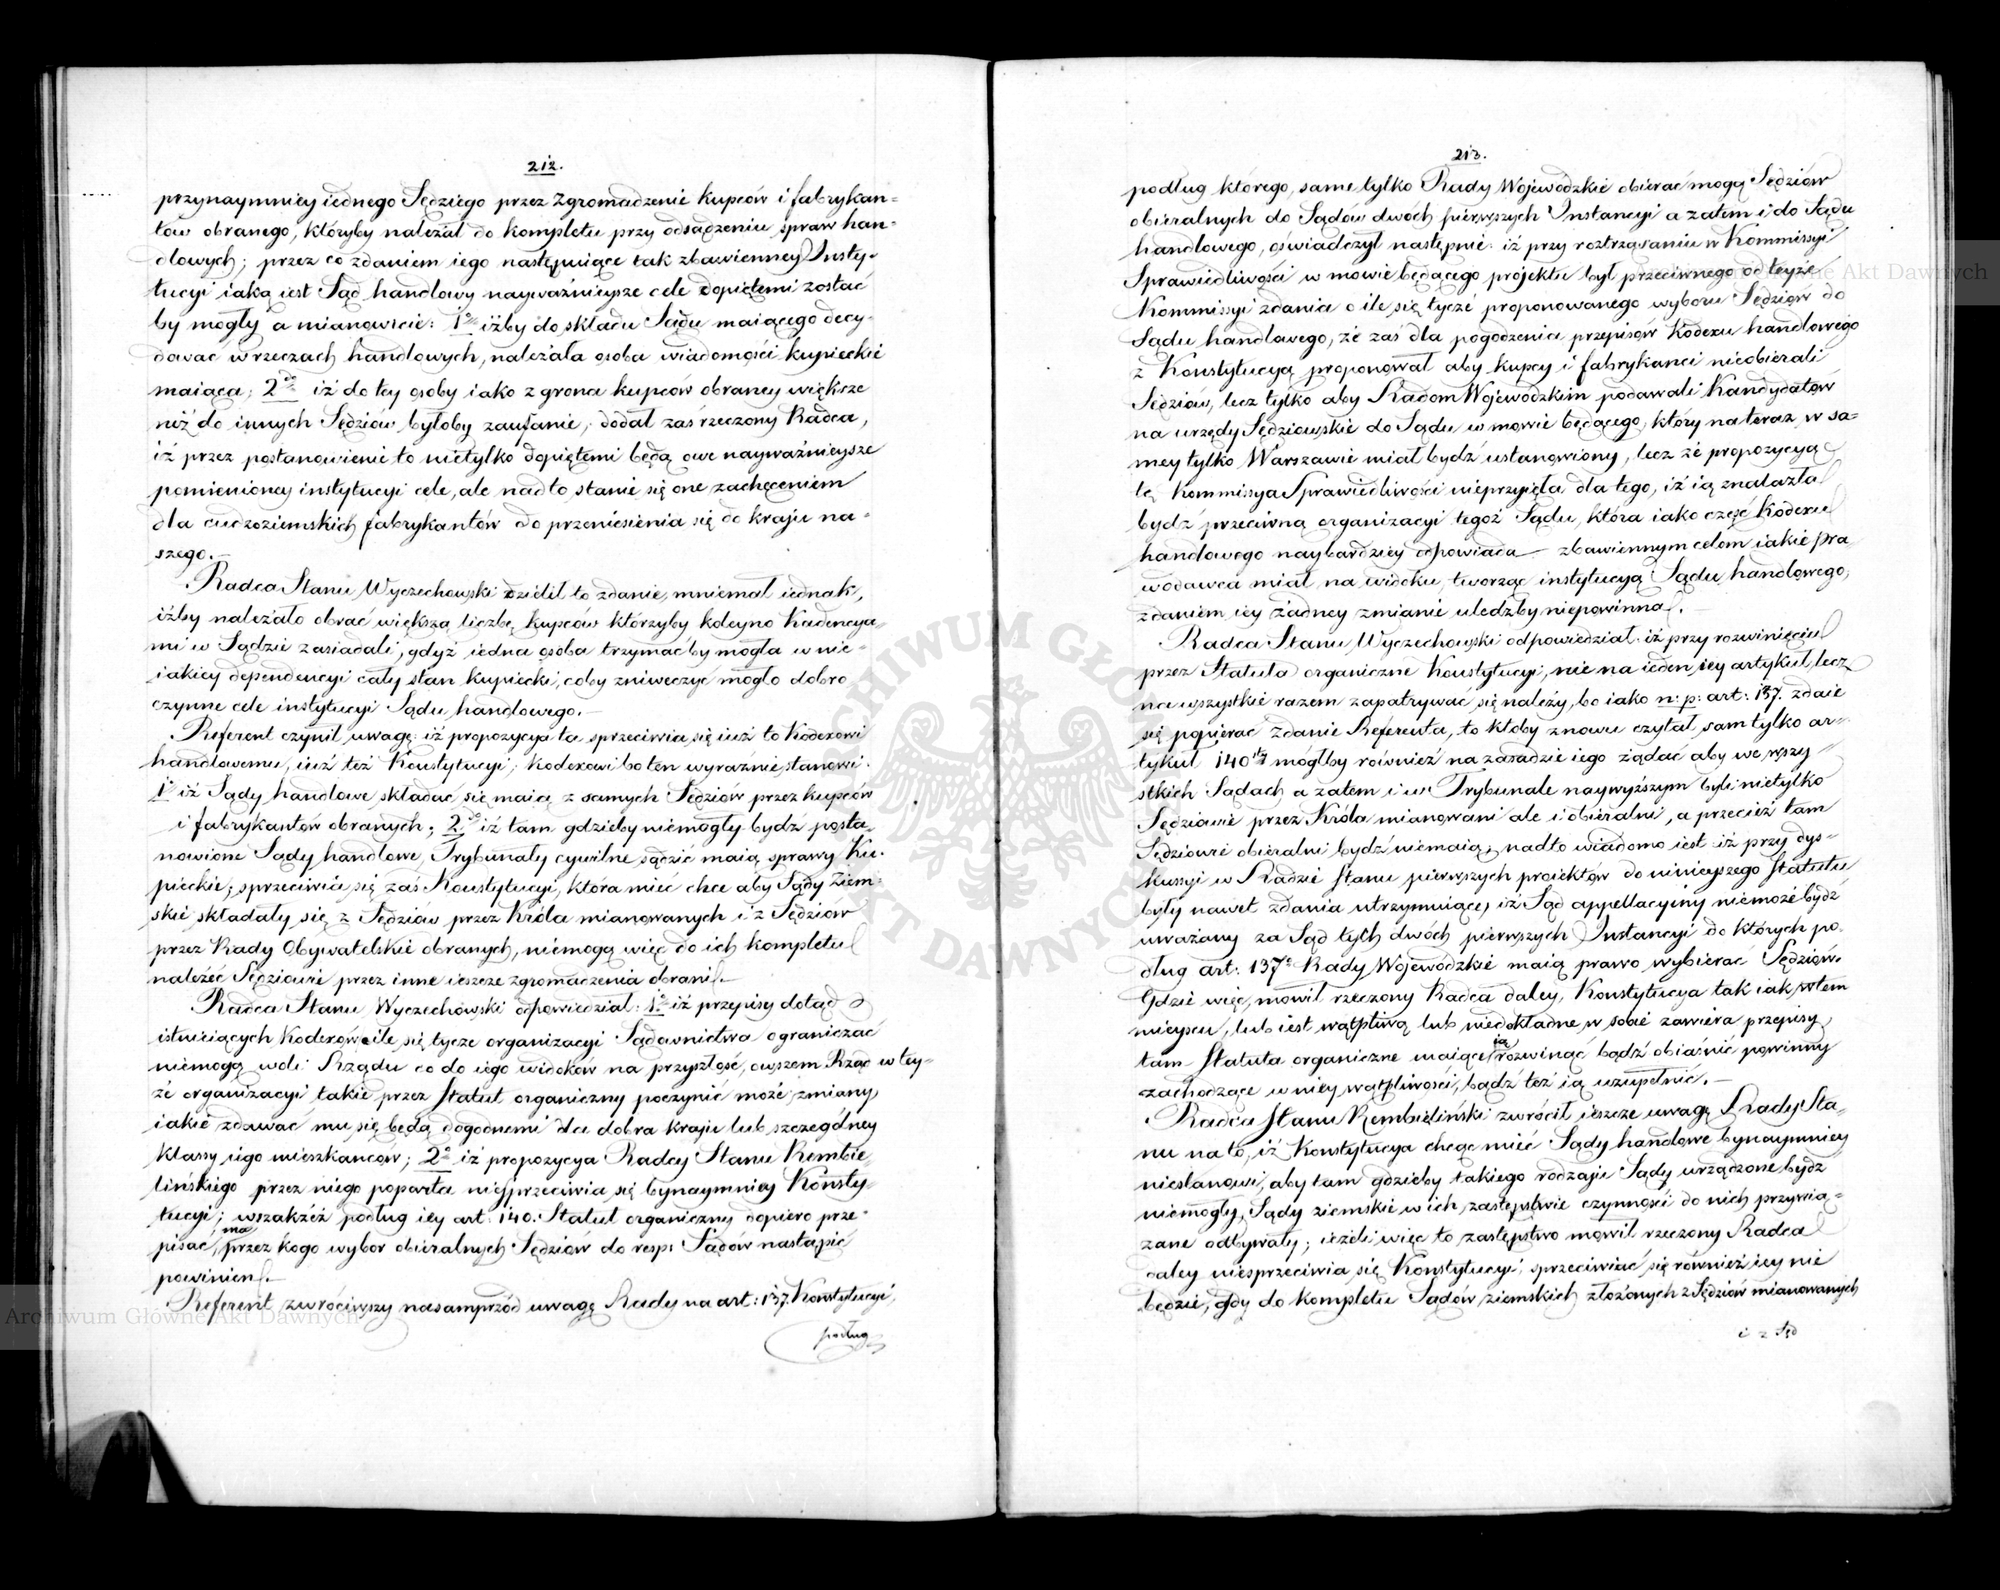 212.
przynaymniey iednego Sędziego przez Zgromadzenie kupców i fabrykan=
tów obranego, któryby należał do kompletu przy odsądzeniu spraw han=
dlowych; przez co zdaniem iego następuiące tak zbawienney Insty=
tucyi iaką iest Sąd handlowy nayważnieysze cele dopiętemi zostać
by mogły a mianowicie: 1o iżby do składu Sądu maiącego decy=
dować w rzeczach handlowych, należała osoba wiadomości kupieckie
maiąca; 2do iż do tey osoby iako z grona kupców obraney większe
niż do innych Sędziów byłoby zaufanie; dodał zaś rzeczony Radca,
iż przez postanowienie to nietylko dopiętemi będą owe nayważnieysze
pomienioney instytucyi cele, ale nadto stanie się one zachęceniem
dla cudzoziemskich fabrykantów do przeniesienia się do kraju na=
szego.—
Radca Stanu Wyczechowski dzielił to zdanie, mniemał iednak,
iżby należało obrać większą liczbę kupców którzyby koleyno Kadencya=
mi w Sądzie zasiadali, gdyż iedna osoba trzymać by mogła w nie=
iakiey dependencyi cały stan kupiecki, coby zniweczyć mogło dobro=
czynne cele instytucyi Sądu handlowego.—
Referent czynił uwagę: iż propozycya ta sprzeciwia się iuż to Kodexowi
handlowemu, iuż też Konstytucyi; Kodexowi bo ten wyraznie stanowi:
1o iż Sądy handlowe składać się maią z samych Sędziów przez kupców
i fabrykantów obranych; 2do iż tam gdzieby niemogły bydź posta=
nowione Sądy handlowe, Trybunały cywilne sądzić maią sprawy Ku=
pieckie; sprzeciwia się zaś Konstytucyi, która mieć chce aby Sądy Ziem=
skie składały się z Sędziów przez Króla mianowanych i z Sędziow
przez Rady Obywatelskie obranych, niemogą więc do ich kompletu
należeć Sędziowie przez inne ieszcze zgromadzenia obrani.—
Radca Stanu Wyczechowski odpowiedział: 1o iż przepisy dotąd
istnieiących Kodexów ile się tycze organizacyi Sądownictwa ograniczać
niemogą woli Rządu co do iego widoków na przyszłość, owszem Rząd w tey=
że organizacyi takie przez Statut organiczny poczynić może zmiany
iakie zdawać mu się będą dogodnemi dla dobra kraju lub szczególney
klassy iego mieszkańców; 2o iż propozycya Radcy Stanu Rembie=
lińskiego przez niego poparta nieprzeciwia się bynaymniey Konsty=
tucyi; wszakże podług iey art: 140. Statut organiczny dopiero prze=
pisać ma, przez kogo wybor obieralnych Sędziów do resp: Sądów nastąpić
powinien.—
Referent zwróciwszy nasamprzód uwagę Rady na art: 137. Konstytucyi,
podług
213.
podług którego, same tylko Rady Wojewódzkie obierać mogą Sędziów
obieralnych do Sądów dwóch pierwszych Instancyi a zatem i do Sądu
handlowego, oświadczył następnie: iż przy roztrząsaniu w Kommissyi
Sprawiedliwości w mowie będącego projektu był przeciwnego od teyże
Kommissyi zdania o ile się tycze proponowanego wyboru Sędziów do
Sądu handlowego, że zaś dla pogodzenia przepisów Kodexu handlowego
z Konstytucyą proponował aby kupcy i fabrykanci nieobierali
Sędziów, lecz tylko aby Radom Wojewódzkim podawali Kandydatów
na urzędy Sędziowskie do Sądu w mowie będącego, który na teraz w sa=
mey tylko Warszawie miał bydź ustanowiony, lecz że propozycyą
tę Kommissya Sprawiedliwości nieprzyięła dla tego, iż ią znalazła
bydź przeciwną organizacyi tegoż Sądu, która iako część Kodexu
handlowego naybardziey odpowiada zbawiennym celom iakie pra
wodawca miał na widoku, tworząc instytucyą Sądu handlowego,
zdaniem iey żadney zmianie uledzby niepowinna.—
Radca Stanu Wyczechowski odpowiedział: iż przy rozwinięciu
przez Statuta organiczne Konstytucyi, nie na ieden iey artykuł, lecz
na wszystkie razem zapatrywać się należy, bo iako n: p: art: 137. zdaie
się popierać zdanie Referenta, to ktoby znowu czytał sam tylko ar=
tykuł 140ty mógłby również na zasadzie iego żądać aby we wszy=
stkich Sądach a zatem i w Trybunale naywyższym byli nietylko
Sędziowie przez Króla mianowani ale i obieralni, a przecież tam
Sędziowie obieralni bydź niemaią; nadto wiadomo iest iż przy dys=
kussyi w Radzie Stanu pierwszych projektów do ninieyszego Statutu
były nawet zdania utrzymuiące, iż Sąd appellacyiny niemoże bydź
uważany za Sąd tych dwóch pierwszych Instancyi do których po=
dług art: 137o Rady Wojewódzkie maią prawo wybierać Sędziów.
Gdzie więc, mówił rzeczony Radca daley, Konstytucya tak iak w tem
mieyscu, lub iest wątpliwą lub niedokładne w sobie zawiera przepisy,
tam Statuta organiczne maiące ią rozwinąć bądź obiaśnić powinny
zachodzące w niey wątpliwości, bądź też ią uzupełnić.—
Radca Stanu Rembieliński zwrócił ieszcze uwagę Rady Sta=
nu na to, iż Konstytucya chcąc mieć Sądy handlowe bynaymniey
niestanowi, aby tam gdzieby takiego rodzaju Sądy urządzone bydź
niemogły, Sądy ziemskie w ich zastępstwie czynności do nich przywią=
zane odbywały; ieżeli więc to zastępstwo mówił rzeczony Radca
daley niesprzeciwia się Konstytucyi, sprzeciwiać się również iey nie
będzie, gdy do kompletu Sądów ziemskich złożonych z Sędziów mianowanych
i z Sęd
Archiwum Główne Akt Dawnych
Archiwum Główne Akt Dawnych
ARCHIWUM GŁÓWNE AKT DAWNYCH